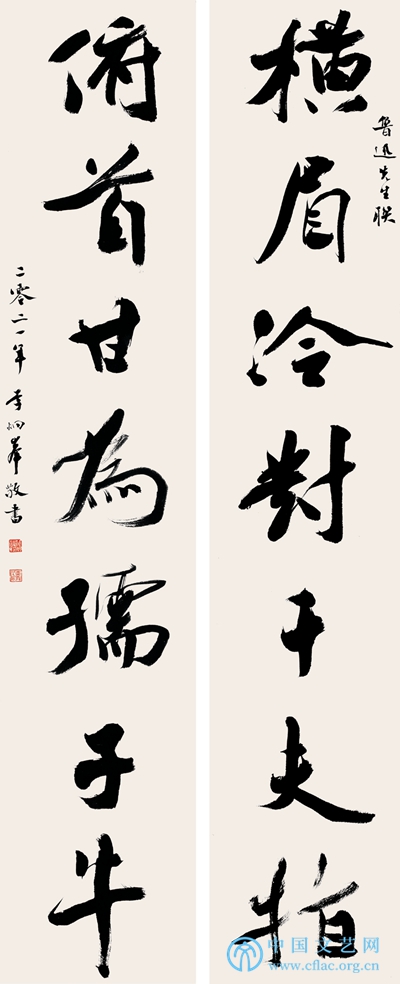 横眉冷對千夫指
魯迅先生联
俯首甘为孺子牛
二零二一年 李炯峯敬書
中国文艺网
www.cflac.org.cn